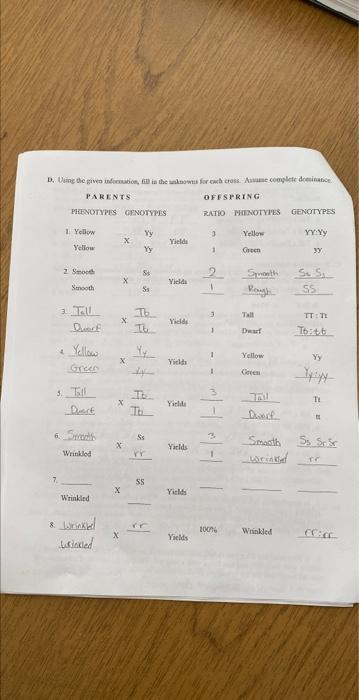 D. Using the given information, fill in the unknowns for each cross. Assume complete dominance.
PARENTS OFFSPRING
PHENOTYPES GENOTYPES RATIO PHENOTYPES GENOTYPES
1. Yellow Yy 3 Yellow YY:Yy
X Yields
Yellow Yy 1 Green yy
2. Smooth Ss 2 Smooth Ss Ss
X Yields
Smooth Ss 1 Rough SS
3. Tall Tb 3 Tall TT : Tt
X Yields
Dwarf Tb 1 Dwarf Tb:tb
4. Yellow Yy 1 Yellow Yy
X Yields
Green yy 1 Green Yy:yy
5. Tall Tb 3 Tall Tt
X Yields
Dwarf Tb 1 Dwarf tt
6. Smooth Ss 3 Smooth Ss Sr Sr
X Yields
Wrinkled rr 1 wrinkled rr
7. SS
X Yields
Wrinkled
8. Wrinkled rr 100% Wrinkled rr:rr
X Yields
Wrinkled